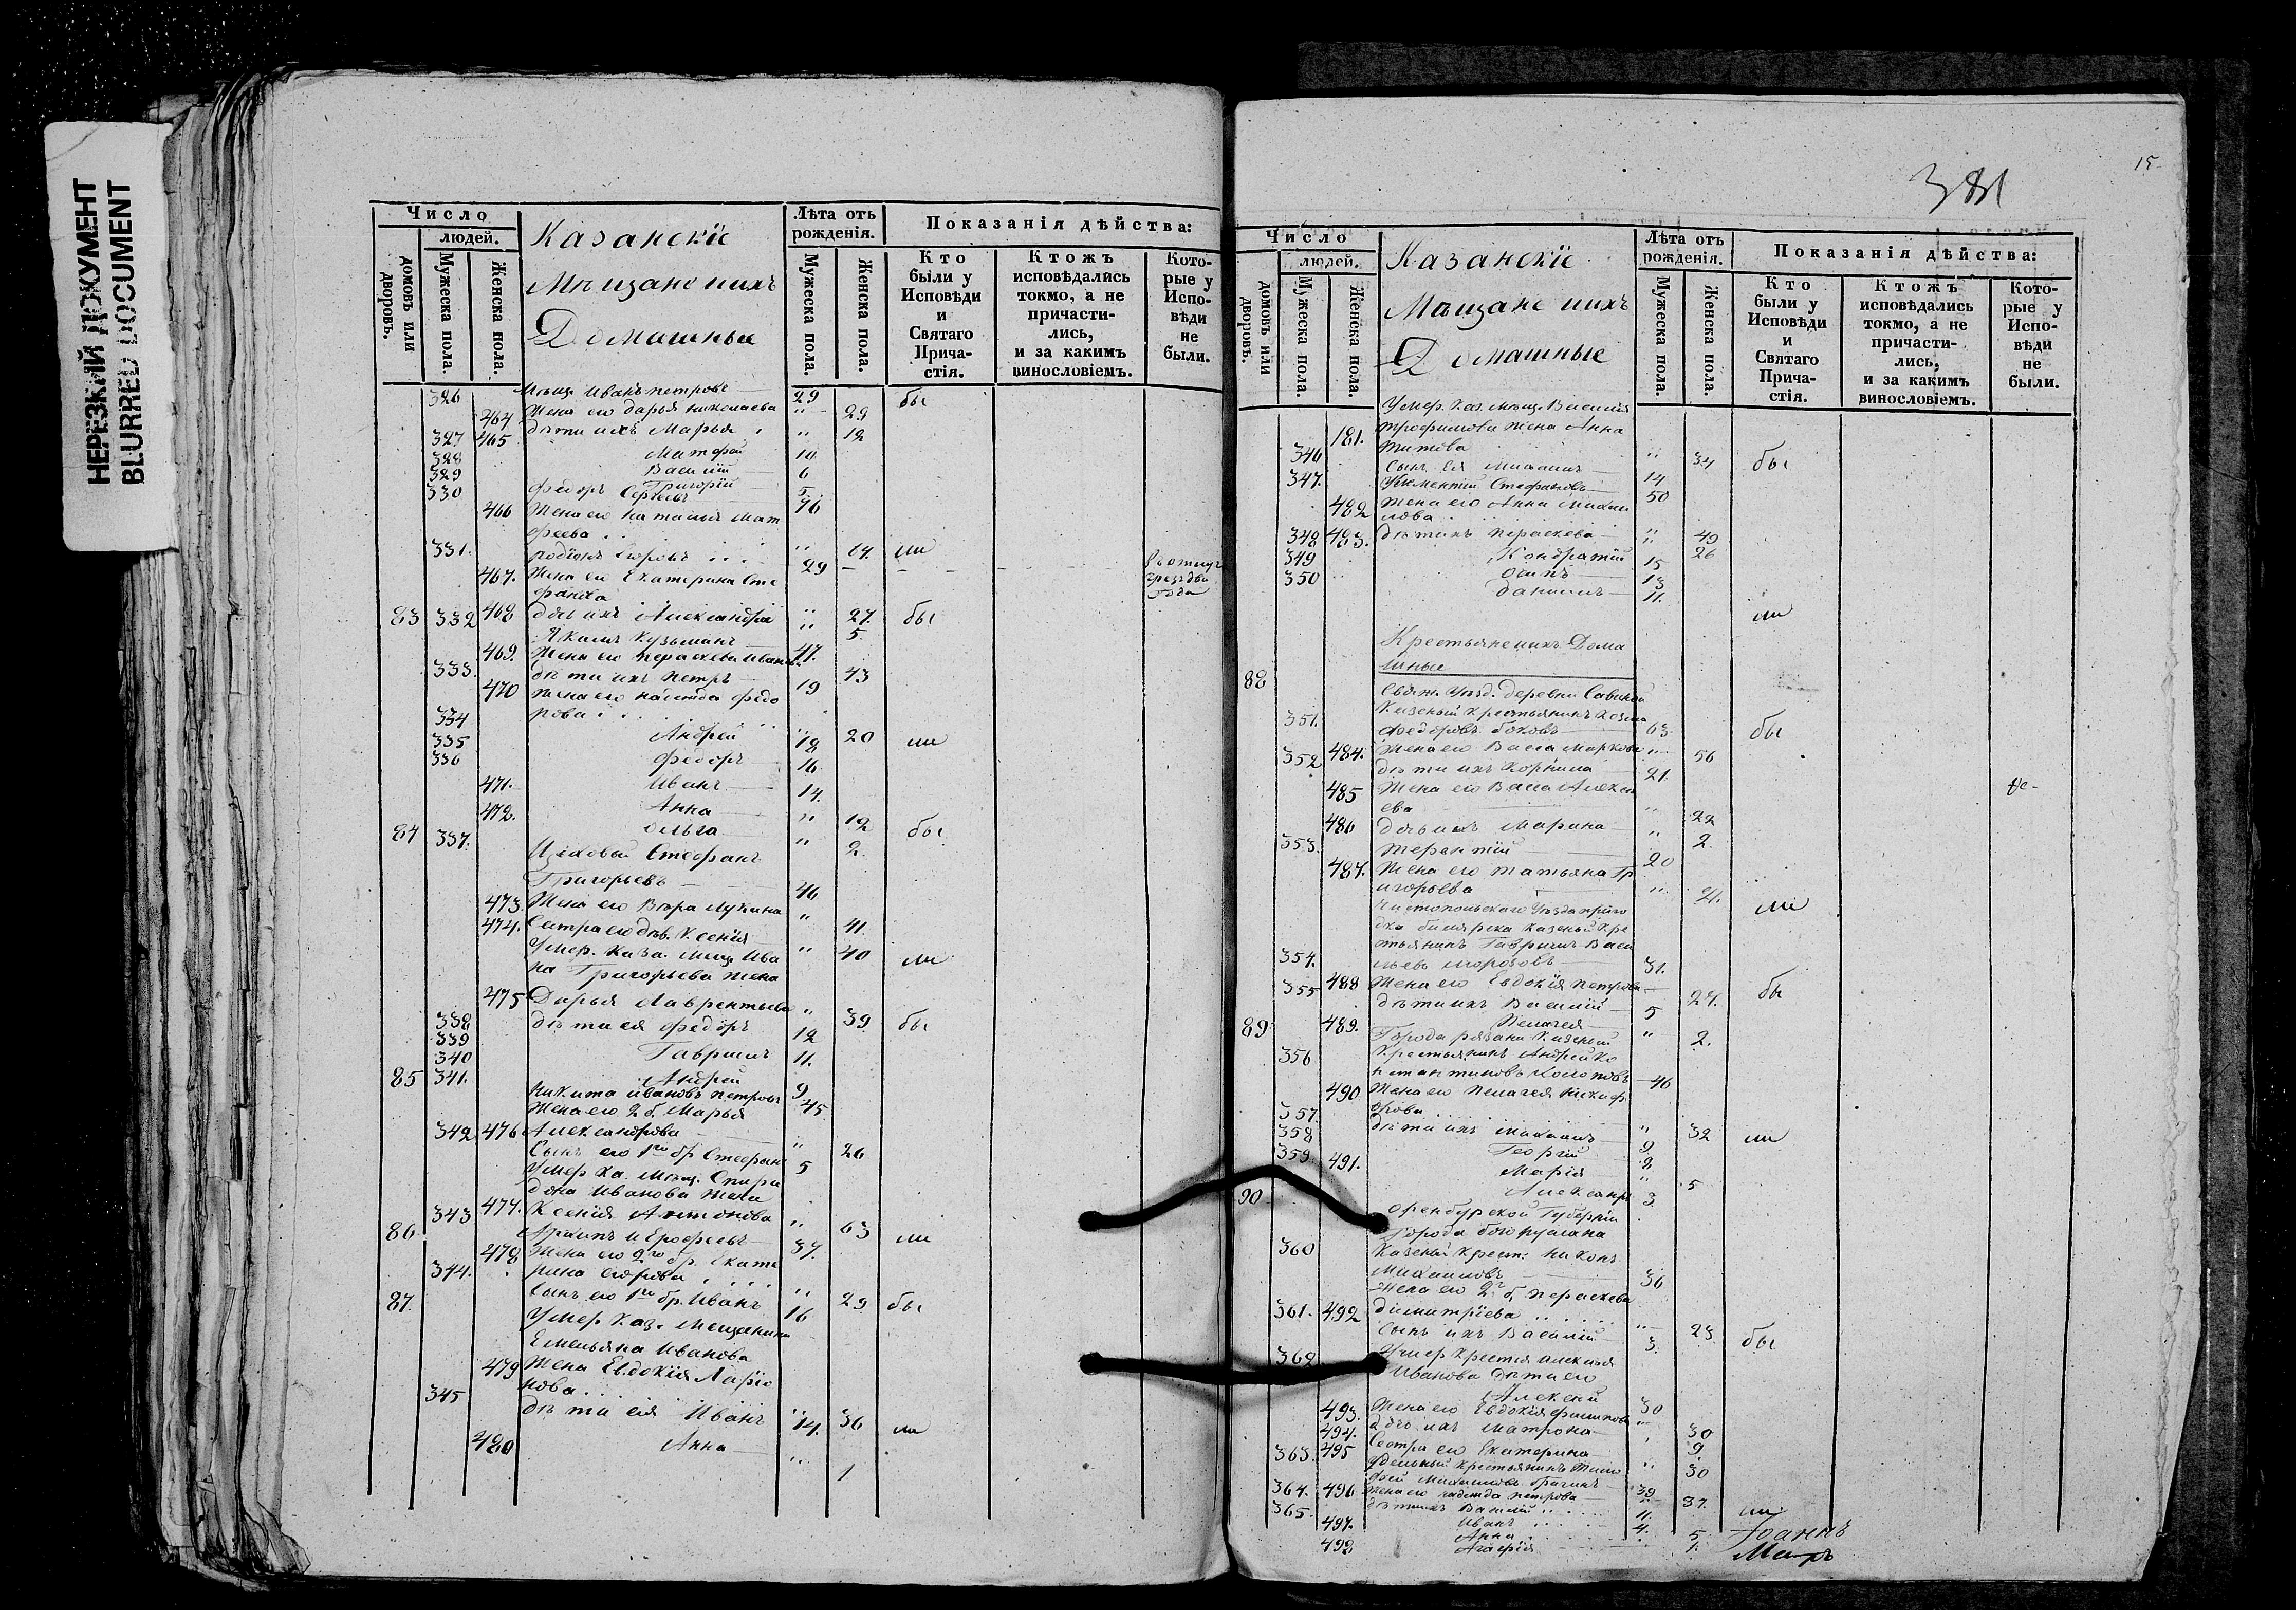 НЕРЕЗКИЙ ДОКУМЕНТ
BLURRED DOCUMENT
Число
людей.
домовъ или дворовъ.
Мужеска пола.
Женска пола.
Казанскіе
Мѣщане ихъ
Домашныя
Лѣта отъ рожденія.
Мужеска пола.
Женска пола.
Показанія дѣйства:
Кто были у Исповѣди и Святаго Прича-стія.
Ктожъ исповѣдались токмо, а не причасти-лись, и за какимъ винословіемъ.
Кото-рые у Испо-вѣди не были.
326 Мѣщ. Иванъ Петровъ 29 бы
464 Жена его Дарья Николаева " 29
327 465 дѣти ихъ Марья " 12
328 Матфей 10
329 Василій 6
330 Григорій 5
Федоръ Сергѣевъ 76
466 Жена его Наталья Мат
феева " ли
331. Родіонъ Егоровъ 29
467. Жена его Екатерина Сте
фанова 27. бы
83 332 468 дочь ихъ Александра " 5
Якимъ Кузьминъ 47.
469. Жена его Параскева Иванова 43
333. дѣти ихъ Петръ 19
470 жена его Надежда Федо
рова 20 ли
334 Андрей 18
335 Федоръ 16
336 Иванъ 14.
471. Анна " 12 бы
472. Ольга " 2.
84 337. Цеховый Стефанъ
Григорьевъ 46
473. Жена его Вѣра Лукина " 41
474. Сестра его дѣв. Ксенія " 40 ли
Умер. Каза. мѣщ. Ива
на Григорьева жена
475 Дарья Лаврентьева " 39 бы
338 дѣти ея Федоръ 12
339 Гаврилъ 11.
340 Андрей 9
85 341. Никита Ивановъ Петровъ 45
Жена его 2 б. Марья
342 476 Александрова " 26
Сынъ его 1го бр. Стефанъ 5
Умер. Ка. Мѣщ. Спири
дона Иванова жена
343 477. Ксенія Антонова " 63 ли
86 Архипъ Ерофеевъ 37.
478 Жена его 2го бр. Екате
344. рина Егорова " 29 бы
Сынъ его 1го бр. Иванъ 16
87. Умер. Каз. Мещанина
Емельяна Иванова
479 Жена Евдокія Ларіо
нова " 36 ли
345 дѣти ея Иванъ 14.
480 Анна " 1
381
15
Число
людей.
домовъ или дворовъ.
Мужеска пола.
Женска пола.
Казанскіе
Мѣщане ихъ
Домашныя
Лѣта отъ рожденія.
Мужеска пола.
Женска пола.
Показанія дѣйства:
Кто были у Исповѣди и Святаго Прича-стія.
Ктожъ исповѣдались токмо, а не причасти-лись, и за какимъ винословіемъ.
Кото-рые у Испо-вѣди не были.
Умер. Каз. мѣщ. Василія
181. Трофимова жена Анна
Титова " 34 бы
346 Сынъ ея Михаилъ 14
347. Климентій Стефановъ 50
482 Жена его Анна Михаи
лова " 49
348 483. дѣти ихъ Параскева " 26
349 Кондратій 15
350 Осипъ 13
Даниилъ 11. ли
Крестьяне ихъ Дома
шные
88 Свіяж. уѣзд. деревни
351. Казеный крестьянинъ Козма
Федоровъ 63 бы
484. Жена его Васса Маркова " 56
352 дѣти ихъ Корнила 21.
485 Жена его Васса Алексѣ
ева " 22
486 дочь ихъ Марина " 2.
353. Терентій 20
487. Жена его Татьяна Гр
игорьева " 21. ли
Чистопольскаго уѣзда приго
дка Билярска казеный кре
стьянинъ Гаврилъ Васи
354. льевъ Морозовъ 31.
488 Жена его Евдокія Петрова 27. бы
355 дѣти ихъ Василій 5
489. Пелагея " 2.
89 Города Рязани казеный
356 крестьянинъ Андрей Ко
нстантиновъ 46
490 Жена его Пелагея Никиф
орова " 32 ли
357. дѣти ихъ Михаилъ 9
358 Георгій 8
491. Марія " 5
359. Александръ 3
90 Оренбургской Губерніи
Города Богоруслана
360 Казеный крест. Никонъ
Михаиловъ 36
Жена его 2 б. Параскева
492 Димитріева " 23 бы
361. Сынъ ихъ Василій 3.
Умер. крестья. Алексѣя
Иванова дѣти его
362 Алексѣй 30
493. Жена его Евдокія Филипова " 30
494. дочь ихъ Матрона " 9
495 Сестра его Екатерина " 30
363. Удѣльный крестьянинъ Тимо
фей Михаиловъ 39
496 Жена его Надежда Петрова " 37. ли
364. дѣти ихъ Василій 11.
365. Иванъ 4.
497. Анна 5
498 Агафія 1.
Іоаннъ